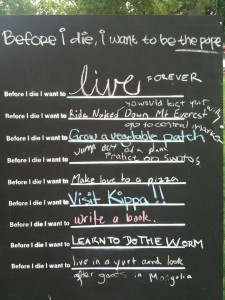 Before i die, i want to be the pope
live FOREVER
Before I die I want to
Before I die I want to Ride Naked Down Mt Everest
go to central
Before I die I want to Grow a vegetable patch
jump out of a plane
Before I die I want to
Before I die I want to Make love to a pizza
Before I die I want to Visit Kippa!!
Before I die I want to write a book.
Before I die I want to LEARN TO DO THE WORM
Before I die I want to live in a yurt and look
after goats in Mongolia